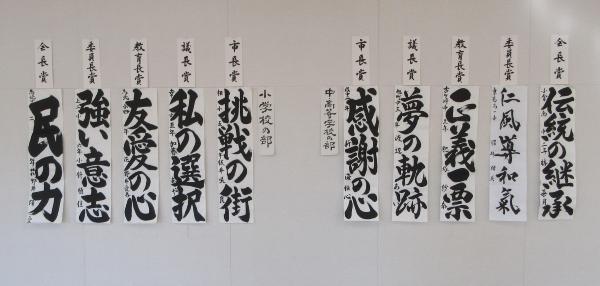 会長賞
伝統の継承
委員長賞
仁風尊和氣
教育長賞
正義一票
議長賞
夢の軌跡
市長賞
感謝の心
中・高等学校の部
小学校の部
市長賞
挑戦の街
議長賞
私の選択
教育長賞
友愛の心
委員長賞
強い意志
会長賞
民の力